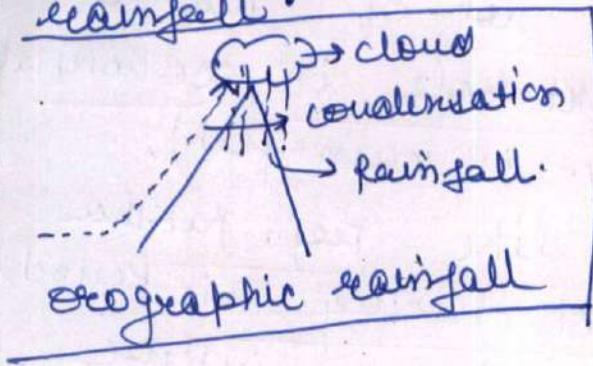 rainfall.
cloud
condensation
Rainfall.
orographic rainfall